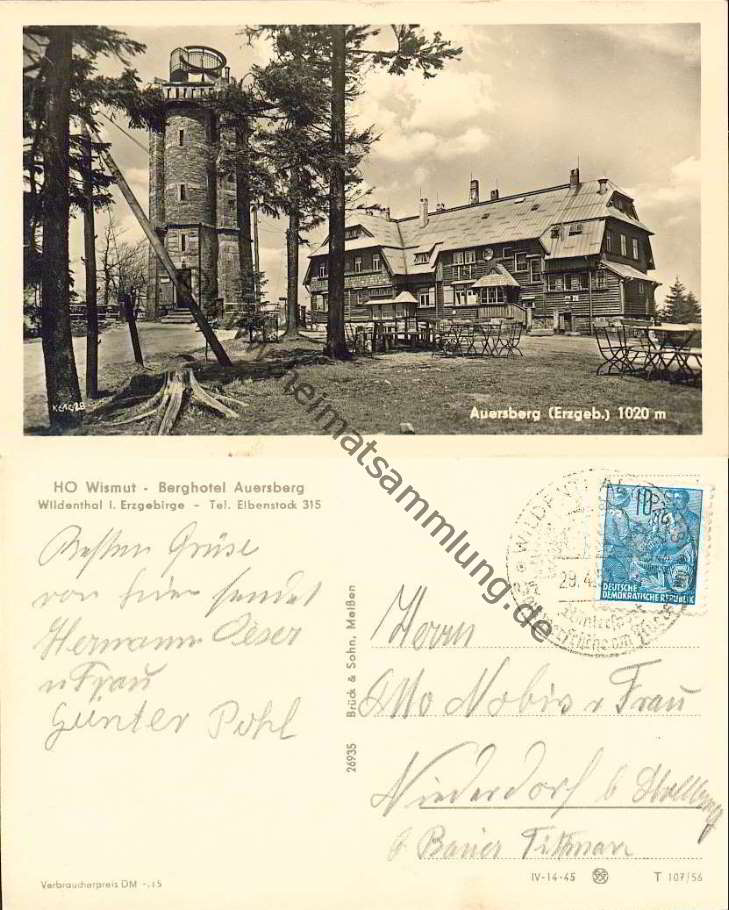 Auersberg (Erzgeb.) 1020 m
heimatsammlung.de
HO Wismut - Berghotel Auersberg
Wildenthal i. Erzgebirge - Tel. Eibenstock 315
Besten Grüse
von hier sendet
Hermann Oeser
u Frau
Günter Pohl
Brück & Sohn, Meißen
26935
10
DEUTSCHE
DEMOKRATISCHE REPUBLIK
29.4
Herrn
Otto Nobis u Frau
Niederdorf b Stollberg
b Bauer Tittman
Verbraucherpreis DM -.15
IV-14-45
T 107/56